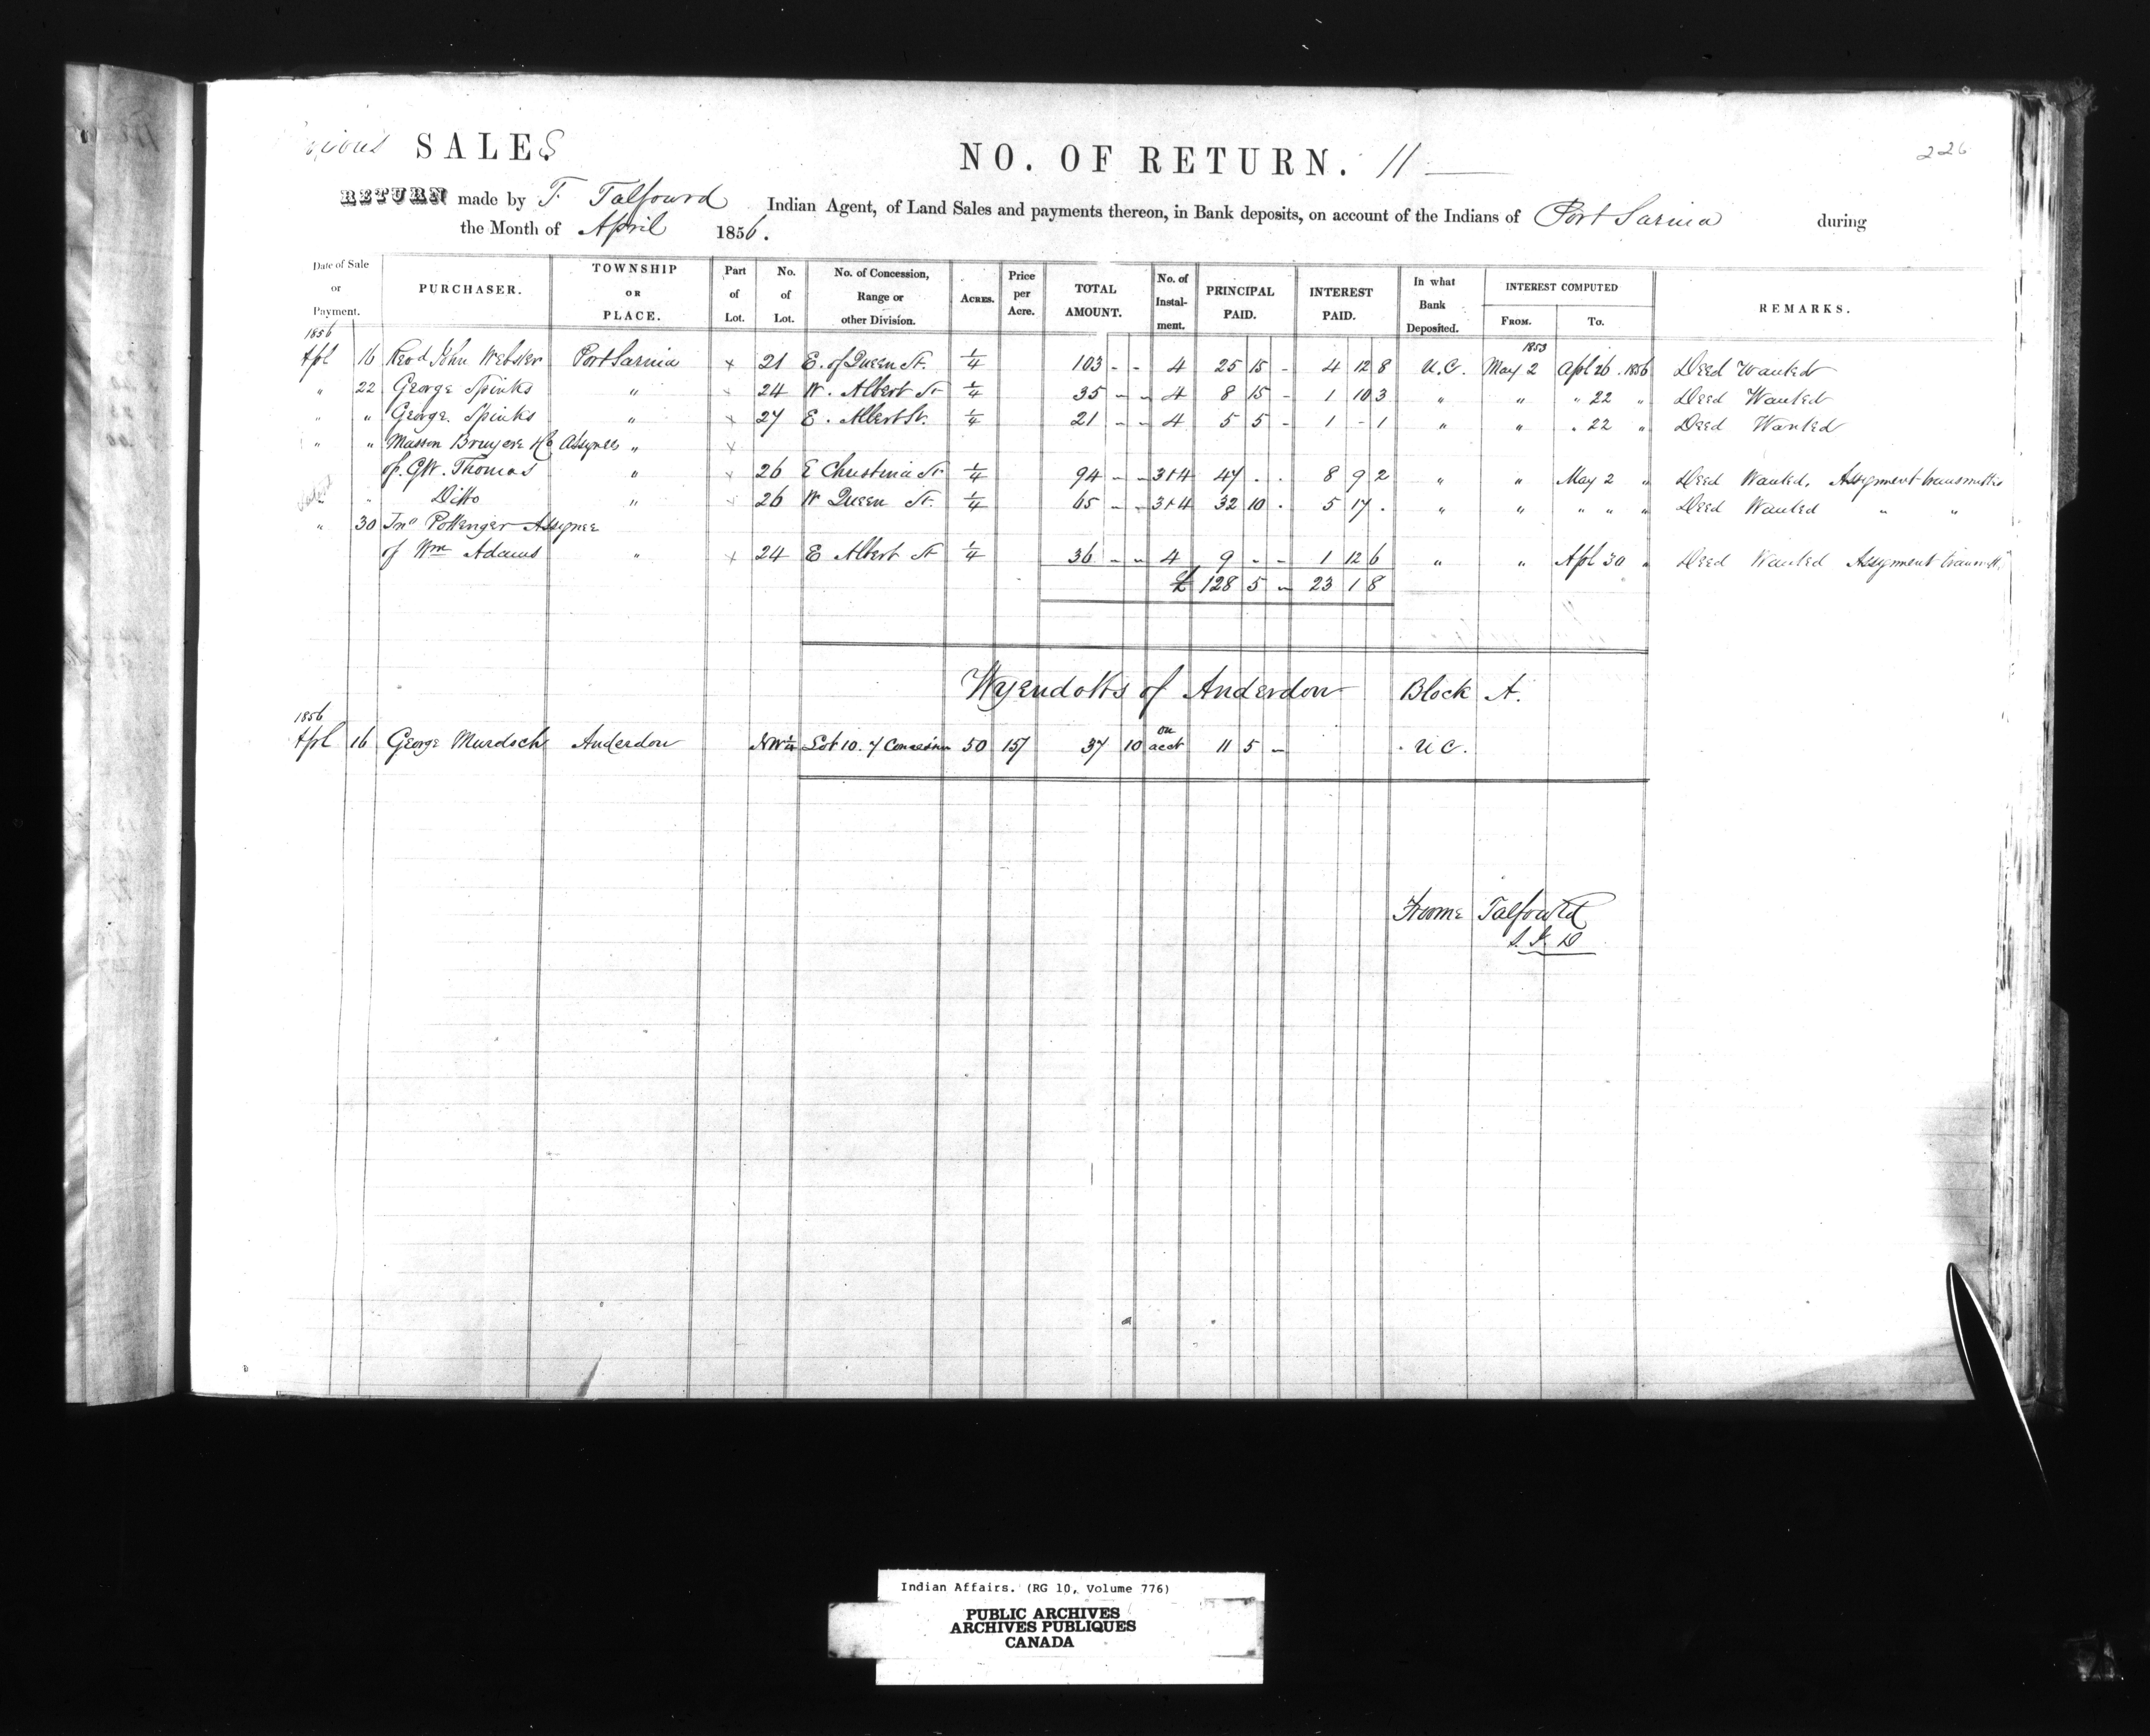 SALES
NO. OF RETURN. 11
226
RETURN made by F. Talfourd Indian Agent, of Land Sales and payments thereon, in Bank deposits, on account of the Indians of Port Sarnia during
the Month of April 1856.
Date of Sale or Payment. PURCHASER. TOWNSHIP OR PLACE. Part of Lot. No. of Lot. No. of Concession, Range or other Division. ACRES. Price per Acre. TOTAL AMOUNT. No. of Instal-ment. PRINCIPAL PAID. INTEREST PAID. In what Bank Deposited. INTEREST COMPUTED FROM. To. REMARKS.
1856
1853
Apl 16 Revd John Webster Port Sarnia + 21 E. of Queen St. 1/4 103 - - 4 25 15 - 4 12 8 U.C. May 2 Apl 26. 1856 Deed Wanted
" 22 George Spinks " + 24 W. Albert St 1/4 35 - - 4 8 15 - 1 10 3 " " " 22 " Deed Wanted
" " George Spinks " + 27 E. Albert St. 1/4 21 - - 4 5 5 - 1 - 1 " " " 22 " Deed Wanted
" " Masson Bruyere & Co Assignees " +
of G.W. Thomas " + 26 E Christina St 1/4 94 - - 3+4 47 . . 8 9 2 " " May 2 " Deed Wanted, Assignment transmitted
" Ditto " + 26 W Queen St. 1/4 65 - - 3+4 32 10 . 5 17 . " " " " " Deed Wanted " "
" 30 Jno Pottenger Assignee
of Wm Adams " + 24 E Albert St 1/4 36 - - 4 9 - - 1 12 6 " " Apl 30 " Deed Wanted Assignment transmtt.
£ 128 5 - 23 1 8
Wyendotts of Anderdon Block A.
1856
Apl 16 George Murdoch Anderdon NW 1/4 Lot 10. 7 Concession 50 15/ 37 10 on acct 11 5 - U C.
Froome Talfourd
S. I. D
Indian Affairs. (RG 10, Volume 776)
PUBLIC ARCHIVES
ARCHIVES PUBLIQUES
CANADA